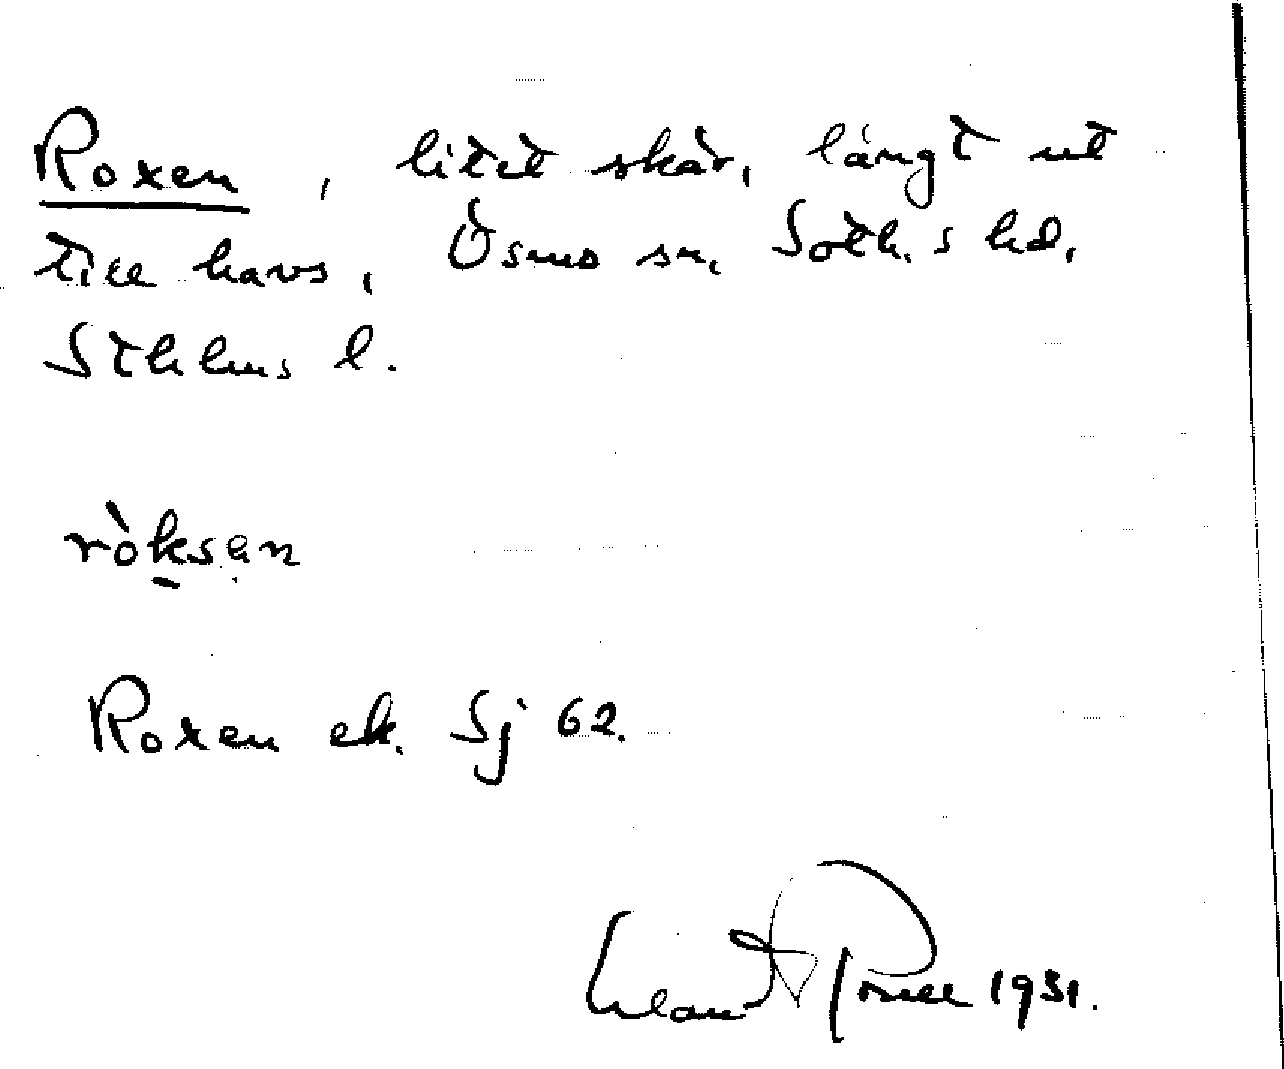 Roxen, litet skär, långt ut
till havs, Ösmo sn, Soth.s hd,
Sthlms l.
ròksən
Roxen ek. Sj 62.
1931.